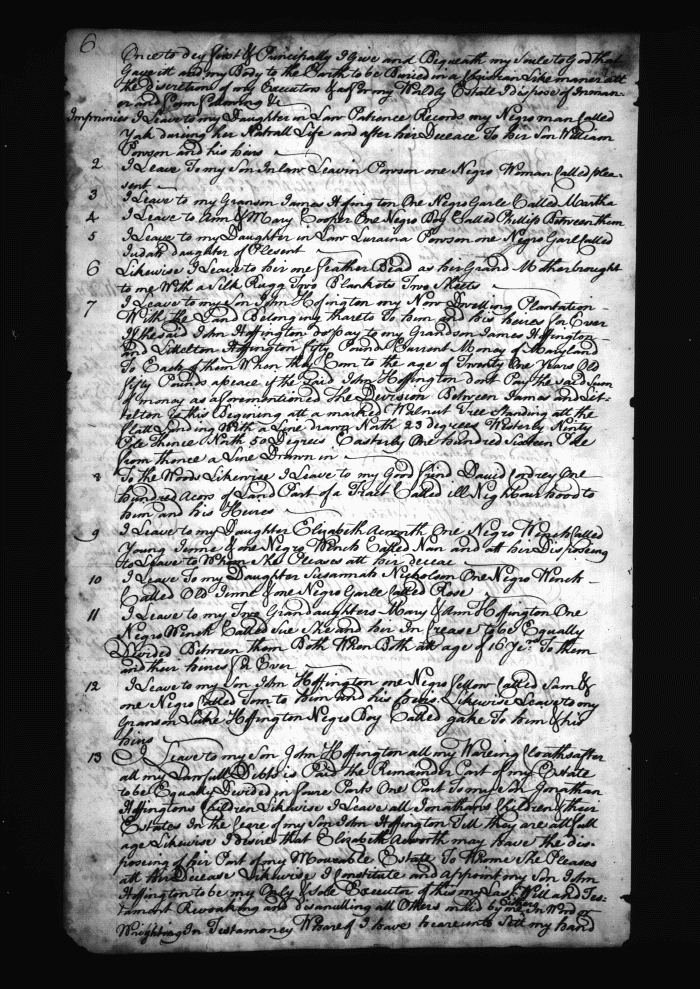 6
Once to dey first & Principally I Give and Bequeath my Soule to God that
Gave it and my Body to the Earth to be Buried in a Christian Like maner att
the discretion of my Executors & as for my Worldly Estate I dispose of in man-
or and Form following &c
Imprimies I Leave to my Daughter in Law Patience Records my Negro man Called
Yak dureing her Natrall Life and after her Deceace To her Son William
Powson and his heirs
2 I Leave To my Son In law Leavin Powson one Negro Woman Called plea-
sent
3 I Leave to my Granson James Hofington One Negro Garle Called Martha
4 I Leave to Ann & Mary Cooper One Negro Boy Called Phillip Between them
5 I Leave to my Daughter in Law Luraina Powson one Negro Garl Called
Judah daughter of Plesent
6 Likewise I Leave to her one feather Bead as her Grand Mother brought
to me With a Silk Rugg Two Blankets Two Sheets
7 I Leave to my Son John Hoffington my Now Dwelling Plantation
With the Land Belonging thareto To him and his heires for Ever
If the said John Hoffington do pay to my Grandson James Hoffington
and Littelton Hoffington fifty Pound Current Money of Maryland
To Each of them When they Com to the age of Twenty One Years Old
fifty Pounds apeace if the Said John Hoffington dont Pay the said Sum
of money as aforementioned The Division Between James and Lit-
telton Is this Begining att a marked Walnut Tree Standing att the
flatt Landing With a Line drawn North 23 degrees Westerly Ninty
Pole thence North 50 Degrees Easterly One hundred Sixteen Pole
from thance a Line Drawn in
8 To the Woods Likewise I Leave to my Good friind David Cordrey One
hundred Acors of Land Part of a Tract Called ill Nighbourhood to
him and his Heires
9 I Leave to my Daughter Elizabeth Acworth One Negro Wench Called
Young Jenne & one Negro Wench Called Nan and att her Disposeing
to Leave to Whom She Pleases att her deceac
10 I Leave To my Daughter Susannah Nicholson One Negro Wench
Called Old Jenne & one Negro Garle Called Rose
11 I Leave to my Two Grandaughters Mary & Ann Hoffington One
Negro Wench Called Sue She and her In Crease to be Equally
Divided Between them Both When Both att age of 16 To them
and their heires for Ever
12 I Leave to my Son John Hoffington one Negro fellow Called Sam &
one Negro Called Tom to him and his heirs Likewise Leave to my
Granson Luke Hoffington Negro Boy Called Yake To him & his
heirs
13 I Leave to my Son John Hoffington all my Wareing Cloaths after
all my Lawfull Debts is Paid the Remainder Part of my Estate
to be Equally Devided in foure Parts One Part To my Son Jonathan
Hoffingtons Children Likewise I Leave all Jonathans Children & their
Estates In the Ceare of my Son John Hoffington Till they are all full
age Likewise I desire that Elizabeth Acworth may Have the dis-
poseing of her Part of my Moveable Estate To Whome She Pleases
att her Decease Likewise I Constitute and Appoint my Son John
Hoffington to be my Only & Sole Executor of this my Last Will and Tes-
tament Revoaking and disanulling all Others maid by me Either In Word or
Wrighting In Testamoney Whareof I have heareunto Sett my hand